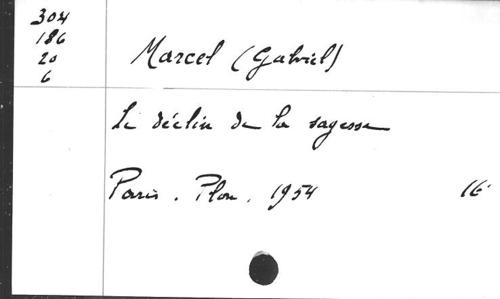 304
186
20
6
Marcel (Gabriel)
Le déclin de la sagesse
Paris. Plon. 1954 16°